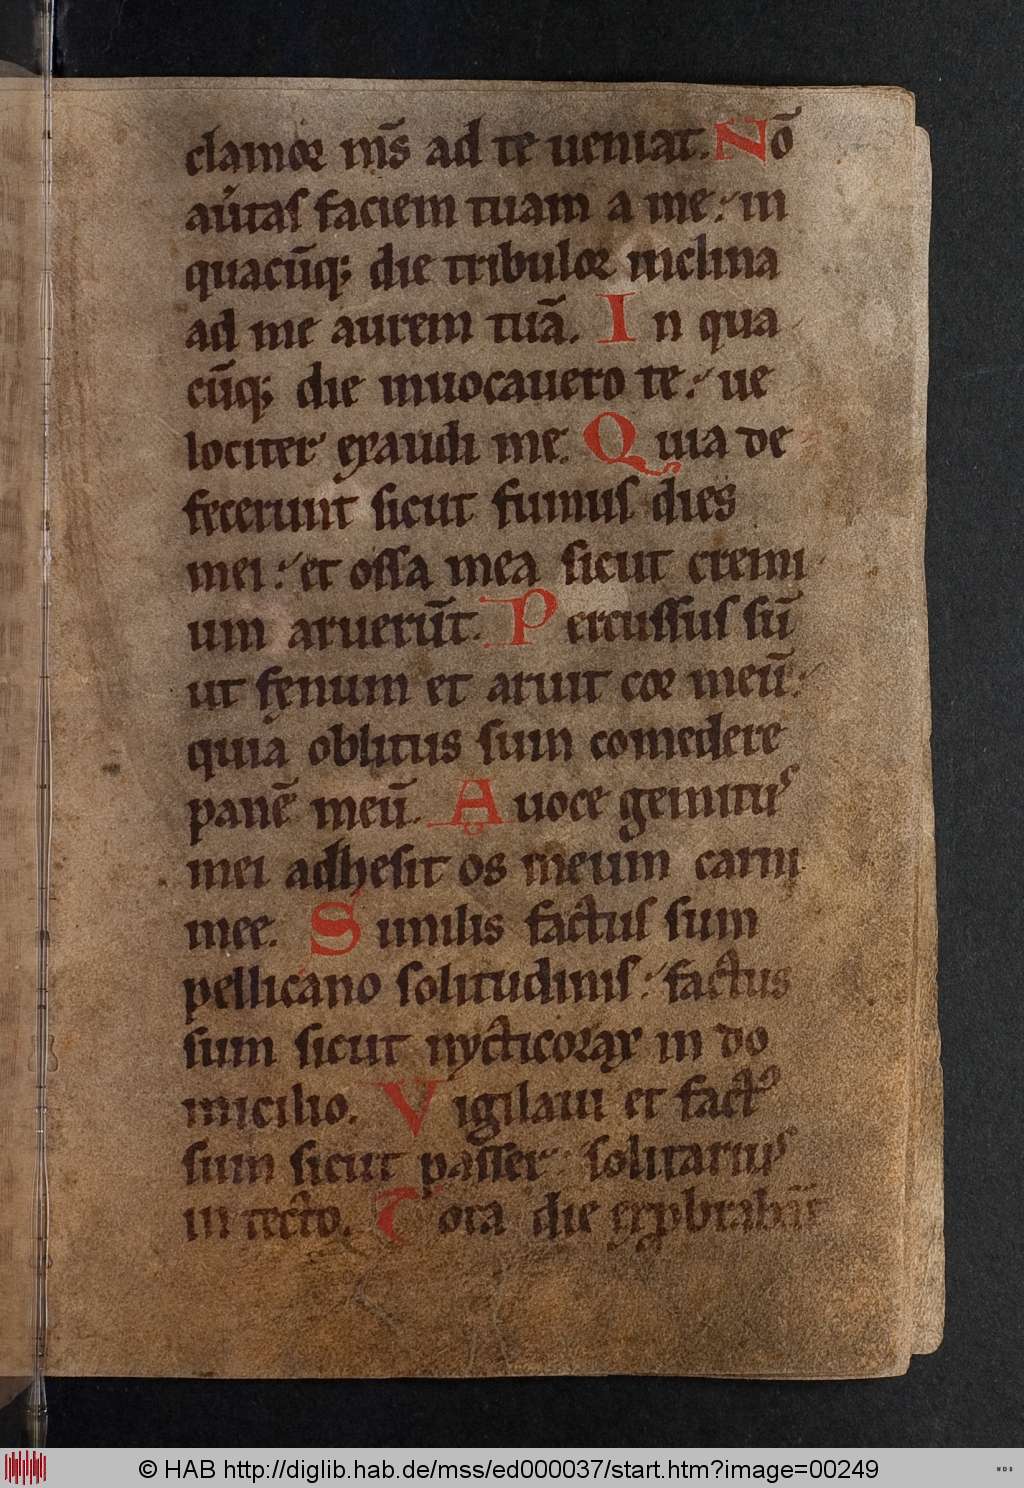 clamor m̄s ad te ueniat. Nō
aủtas faciem tuam a me: in
quacūq; die tribulor inclina
ad me aurem tuā. In qua
cūq; die inuocauero te: ue
lociter exaudi me. Quia de
fecerunt sicut fumus dies
mei: et ossa mea sicut cremi
um aruerūt. Percussus sū
ut fenum et aruit cor meū:
quia oblitus sum comedere
panē meū. A uoce gemituˢ
mei adhesit os meum carni
mee. Similis factus sum
pellicano solitudinis: factus
sum sicut nycticorax in do
micilio. Vigilaui et factꝰ
sum sicut passer solitariuˢ
in tecto. Tota die exꝓbrabāt
© HAB http://diglib.hab.de/mss/ed000037/start.htm?image=00249